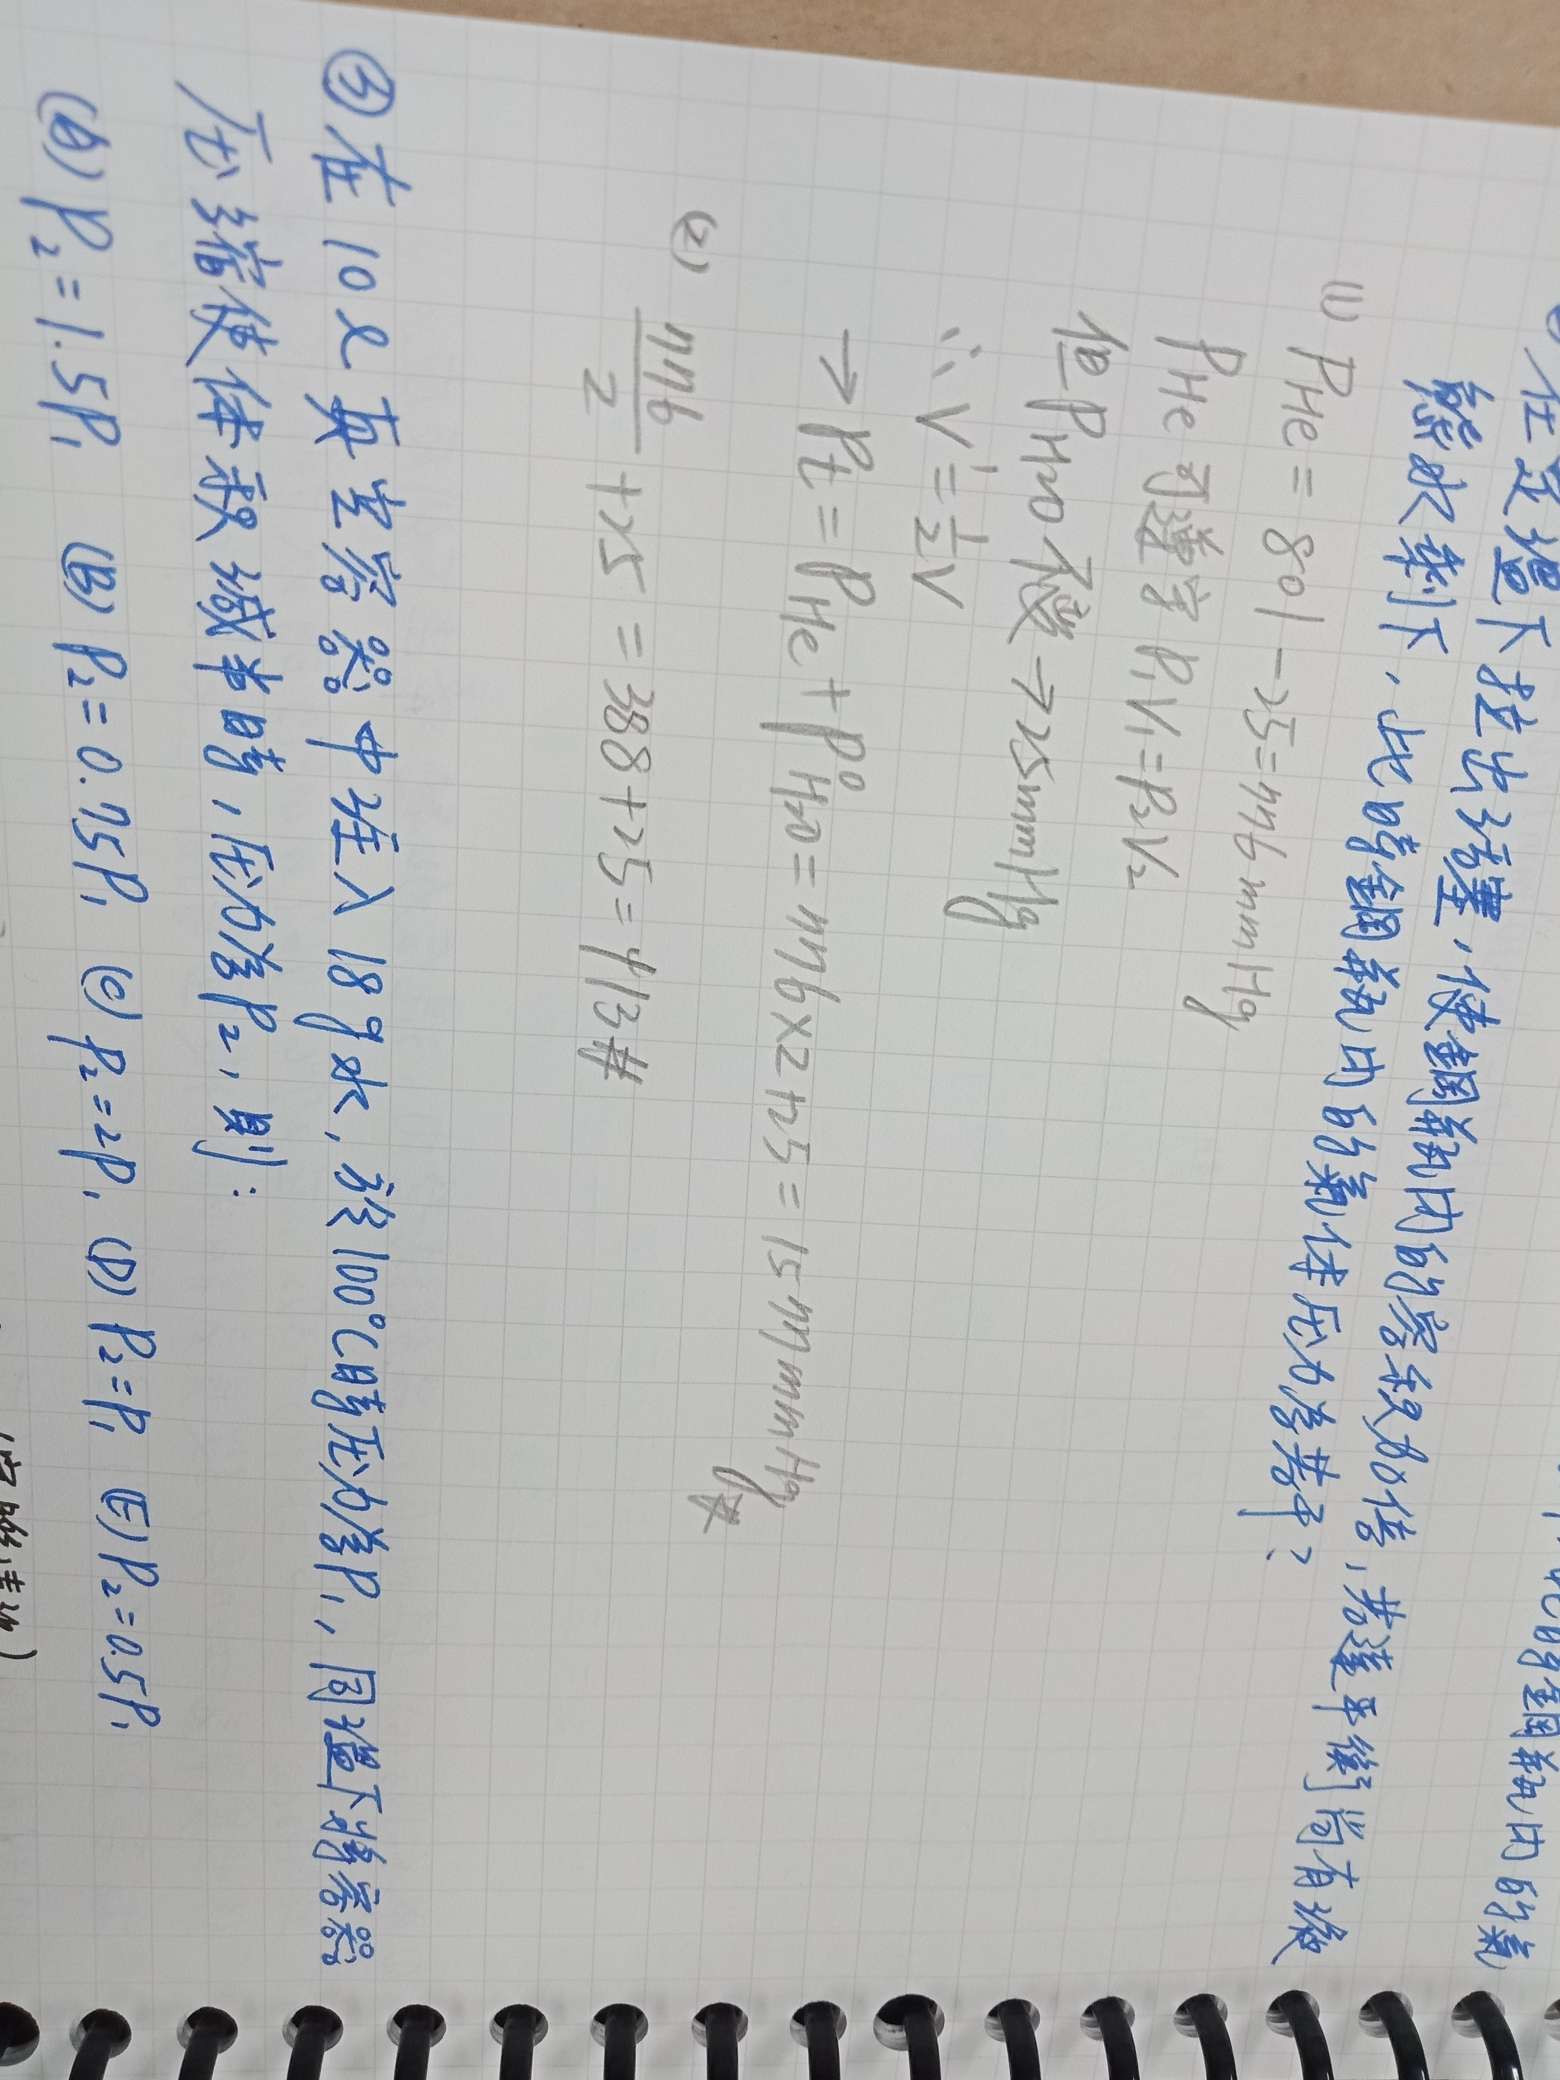 在定溫下拉出活塞,使鋼瓶內的容積加倍,若達平衡尚有液
態水剩下,此時鋼瓶內的氣体压力為若干?
(1) PHe = 801 - 25 = 776 mmHg
PHe 可遵守 P1V1 = P2V2
但 PH2O 不變 → 25mmHg
∴ V' = 1/2 V
→ Pt = PHe + P°H2O = 776×2+25 = 1577 mmHg #
(2) 776/2 + 25 = 388 + 25 = 413 #
③ 在 10 ℓ 真空容器中注入 18 g 水,於 100℃時压力為P1,同溫下將容器
压縮使体積減半時,压力為P2,則:
(A) P2 = 1.5P1 (B) P2 = 0.75P1 (C) P2 = 2P1 (D) P2 = P1 (E) P2 = 0.5P1